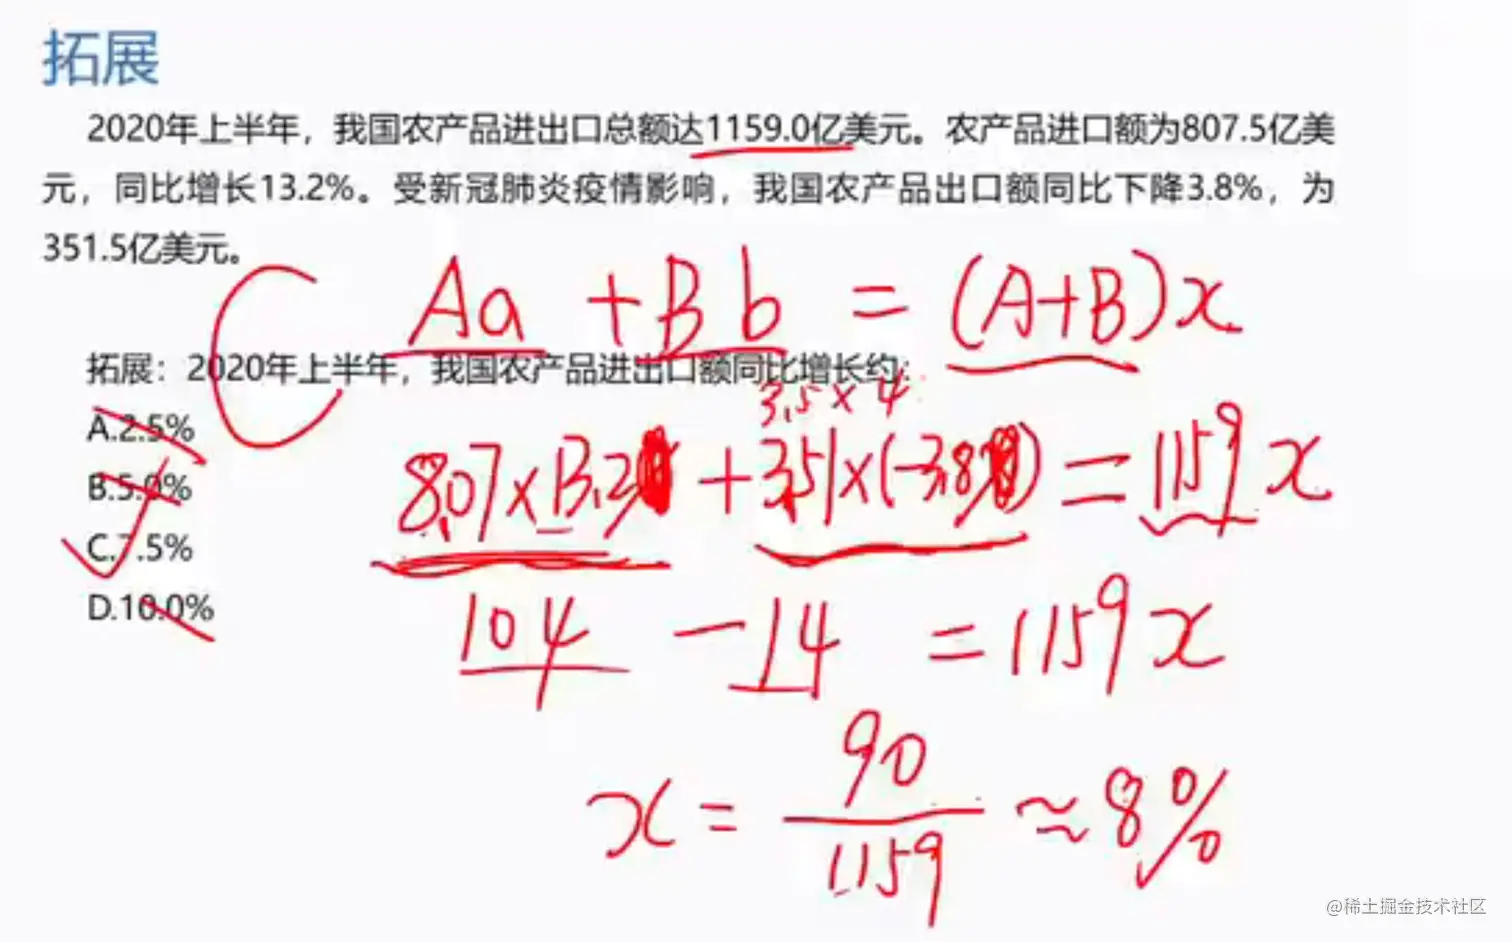 拓展
2020年上半年，我国农产品进出口总额达1159.0亿美元。农产品进口额为807.5亿美
元，同比增长13.2%。受新冠肺炎疫情影响，我国农产品出口额同比下降3.8%，为
351.5亿美元。
Aa + Bb = (A+B)x
拓展：2020年上半年，我国农产品进出口额同比增长约：
3.5×4
A.2.5%
8.07×13.2 + 3.51×(-3.8) = 1159x
B.5.0%
C.7.5%
D.10.0%
104 - 14 = 1159x
x = 90/1159 ≈ 8%
@稀土掘金技术社区